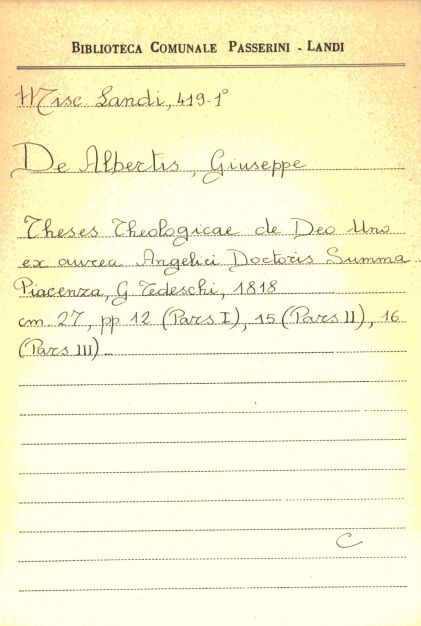 BIBLIOTECA COMUNALE PASSERINI - LANDI
Misc. Landi, 419-1°
De Albertis, Giuseppe
Theses Theologicae de Deo Uno
ex aurea Angelici Doctoris Summa
Piacenza, G. Tedeschi, 1818
cm 27, pp 12 (Pars I), 15 (Pars II), 16
(Pars III)
C